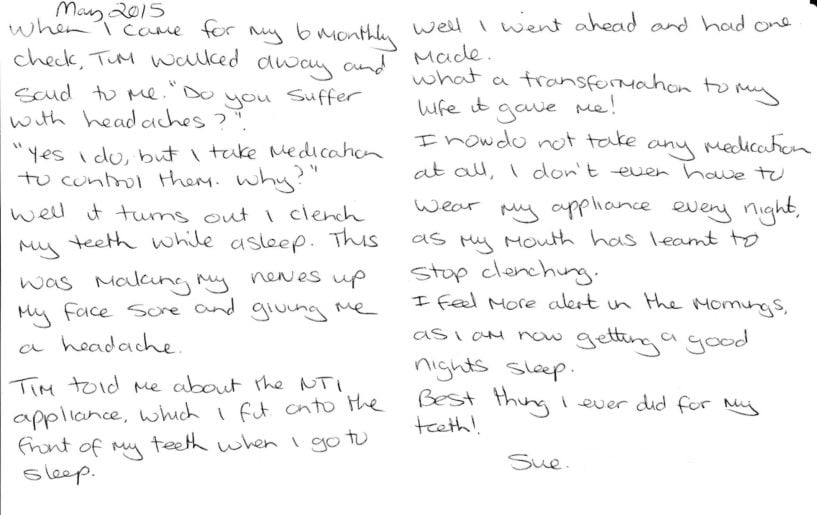 May 2015
When I came for my 6 monthly
check, Tim walked away and
said to me. "Do you suffer
with headaches?".
"Yes I do, but I take medication
to control them. Why?"
Well it turns out I clench
my teeth while asleep. This
was making my nerves up
my face sore and giving me
a headache.
Tim told me about the NTI
appliance, which I fit onto the
front of my teeth when I go to
sleep.
Well I went ahead and had one
made.
What a transformation to my
life it gave me!
I now do not take any medication
at all, I don't even have to
wear my appliance every night,
as my mouth has learnt to
stop clenching.
I feel more alert in the mornings,
as I am now getting a good
nights sleep.
Best thing I ever did for my
teeth!
Sue.